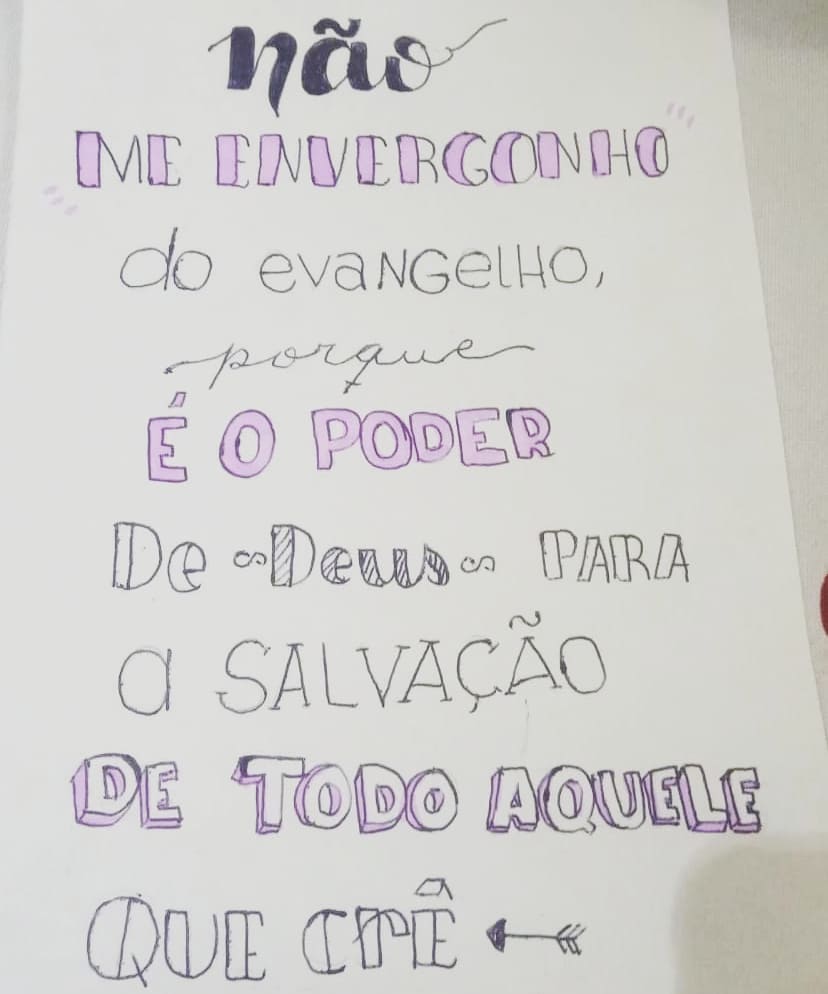 não
ME ENVERGONHO
do evangelho,
porque
É O PODER
De Deus PARA
a SALVAÇÃO
DE TODO AQUELE
QUE CRÊ